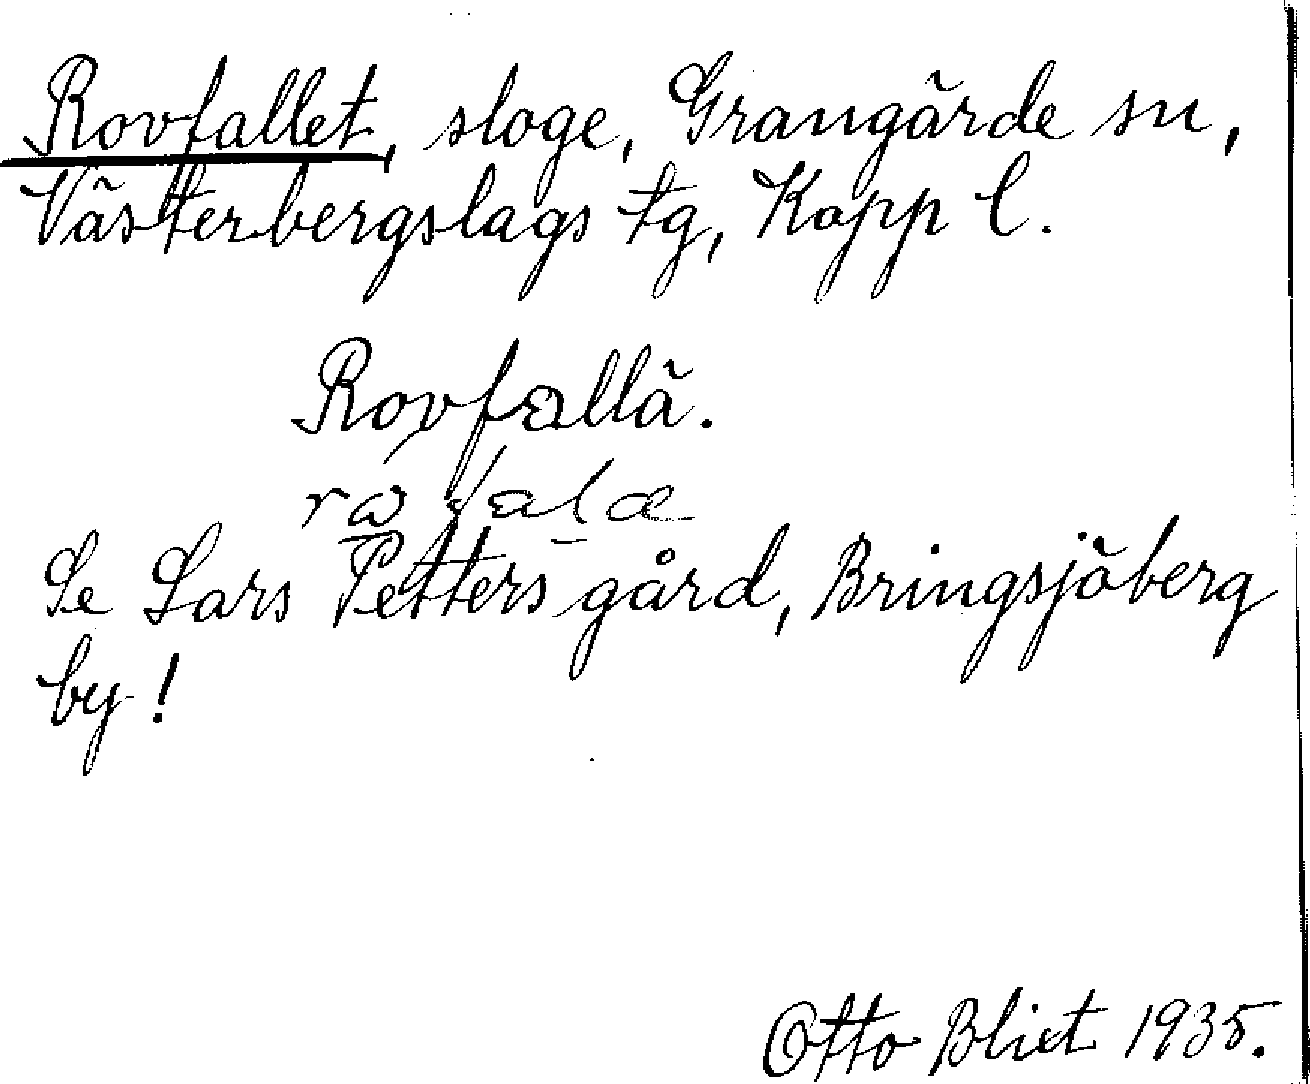 Rovfallet, sloge, Grangärde sn,
Västerbergslags tg, Kopp l.
Rovfallä.
Se Lars Petters gård, Bringsjöberg
by!
Otto Blixt 1935.